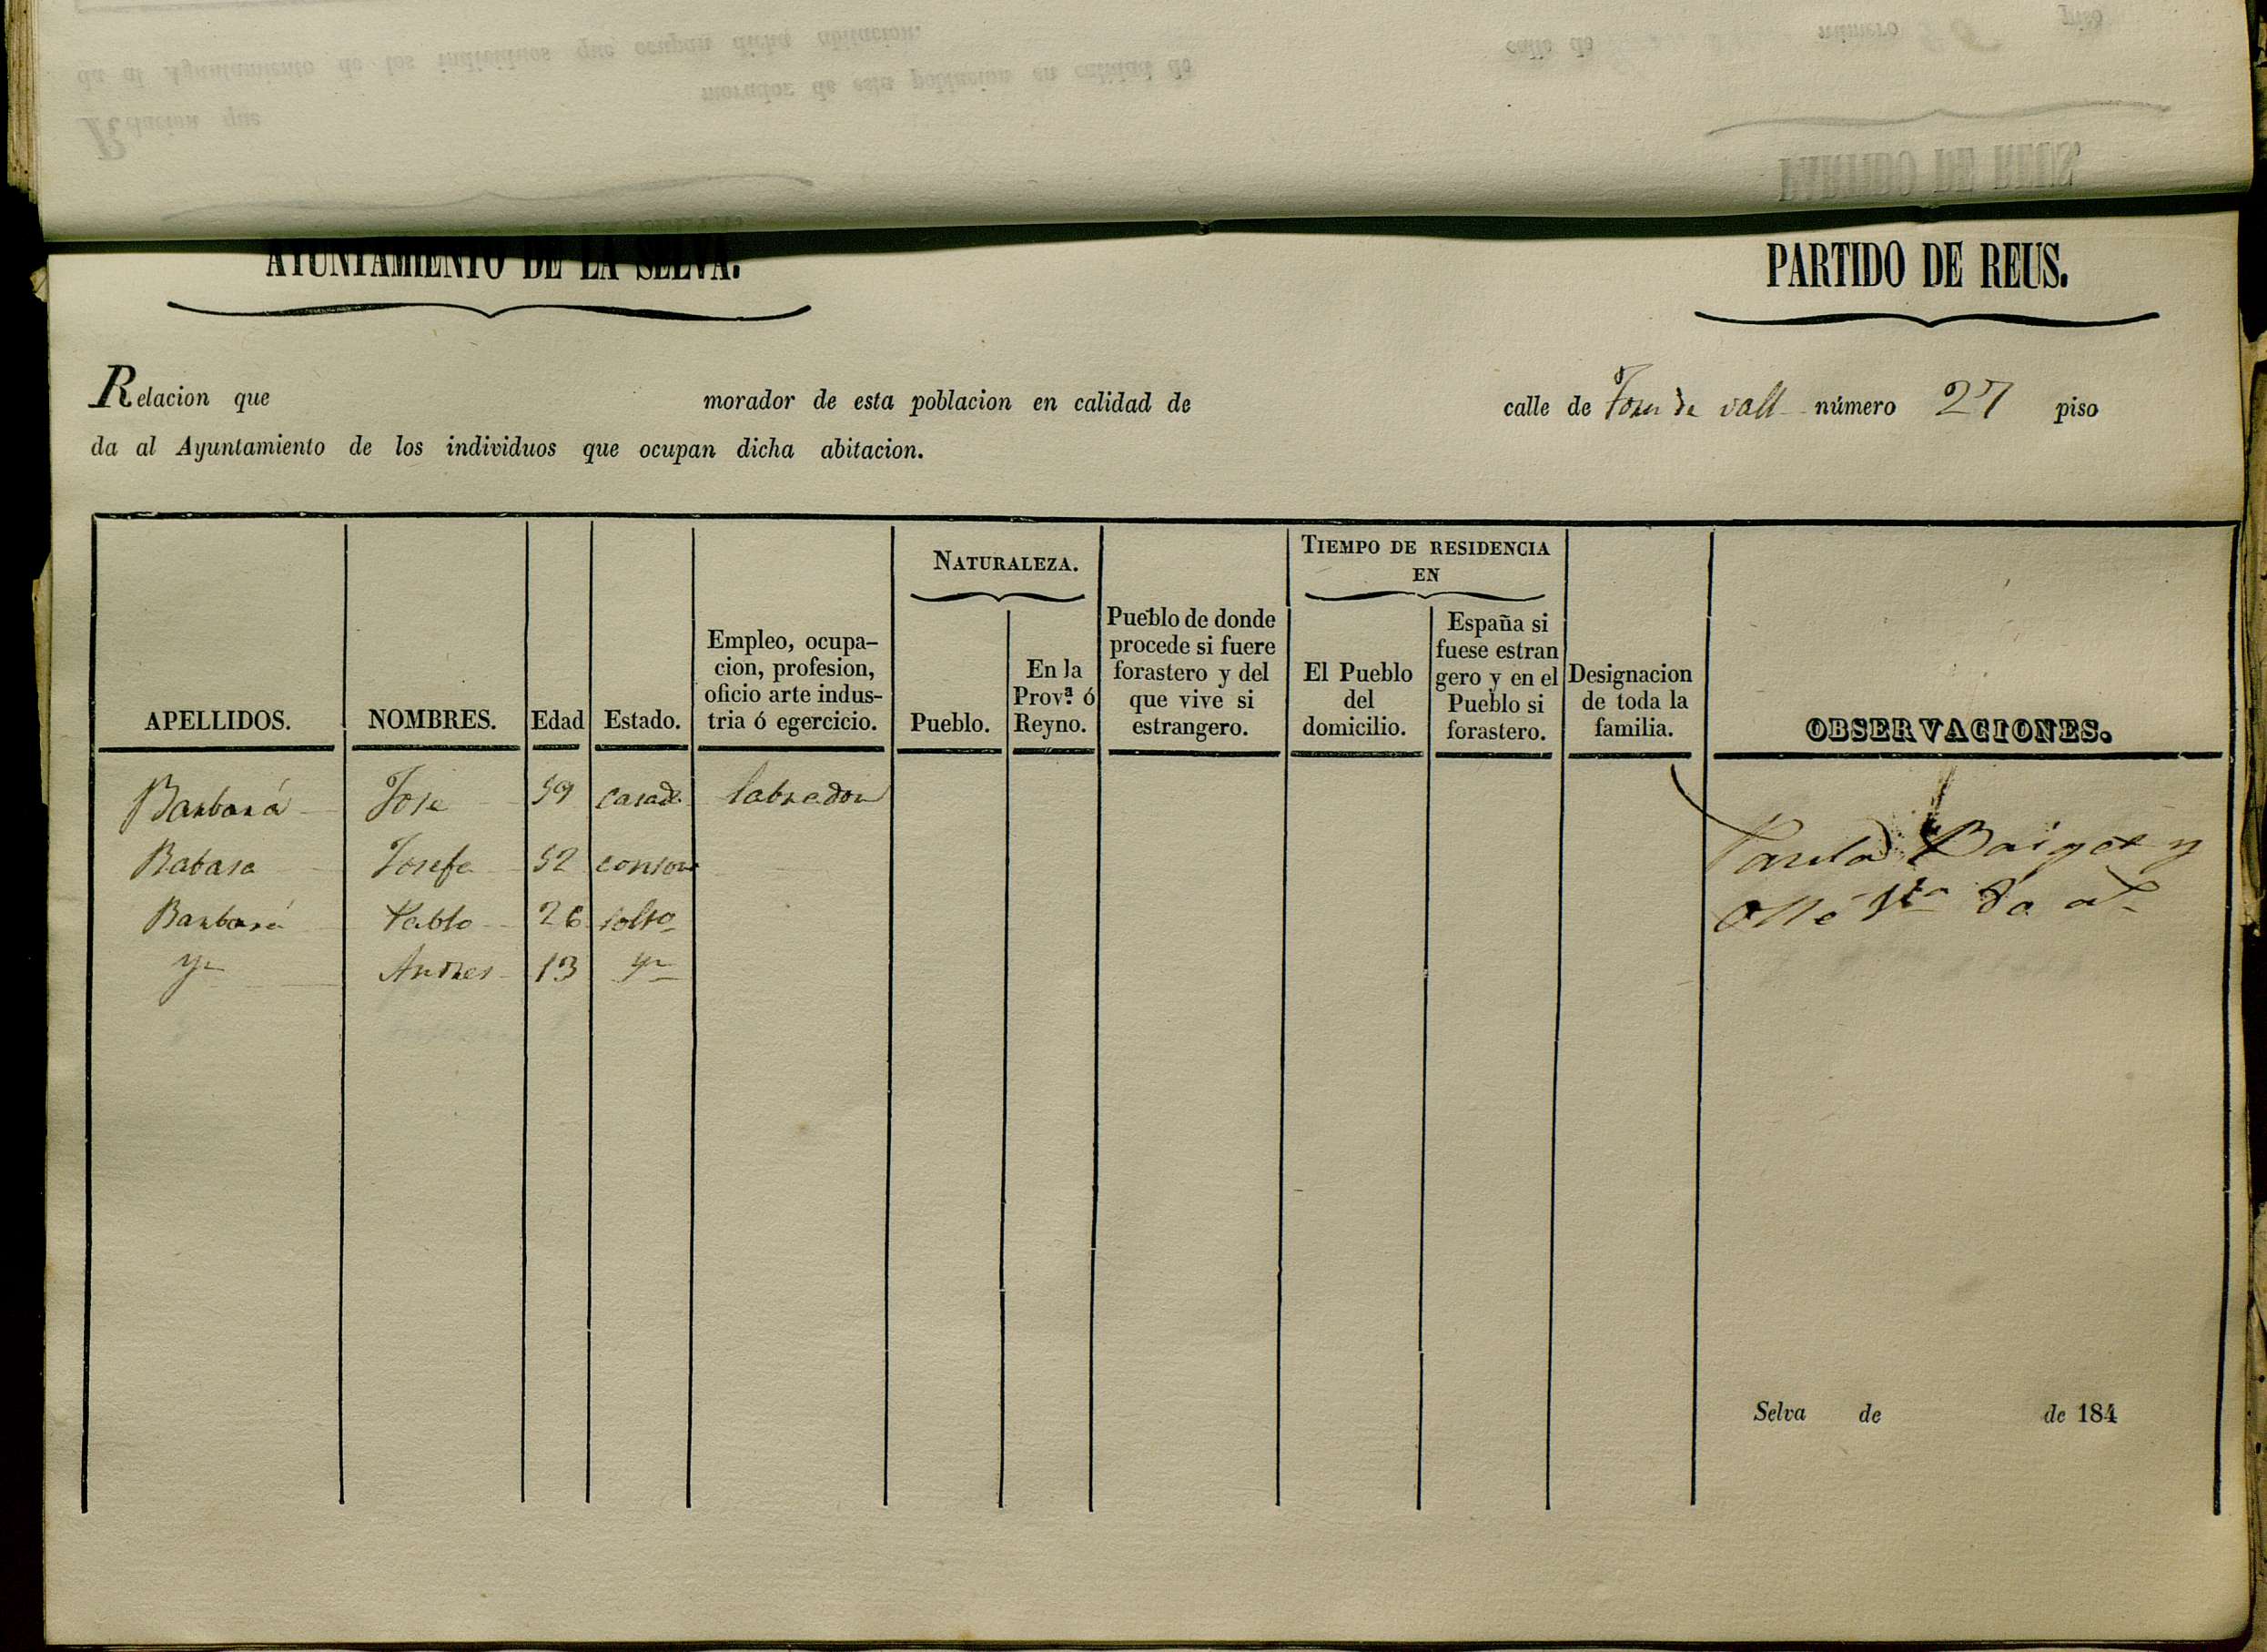 AYUNTAMIENTO DE LA SELVA.
PARTIDO DE REUS.
Relacion que morador de esta poblacion en calidad de calle de Forn de vall número 27 piso
da al Ayuntamiento de los individuos que ocupan dicha abitacion.
NATURALEZA.
TIEMPO DE RESIDENCIA
EN
APELLIDOS.
NOMBRES.
Edad
Estado.
Empleo, ocupa-
cion, profesion,
oficio arte indus-
tria ó egercicio.
Pueblo.
En la
Provª. ó
Reyno.
Pueblo de donde
procede si fuere
forastero y del
que vive si
estrangero.
El Pueblo
del
domicilio.
España si
fuese estran
gero y en el
Pueblo si
forastero.
Designacion
de toda la
familia.
OBSERVACIONES.
Barbará Jose 59 casado labrador
Babara Josefa 52 consor
Barbará Pablo 26 solto
Yn Andres 13 yn
Paula Baiget y
Ollé
Selva de de 184